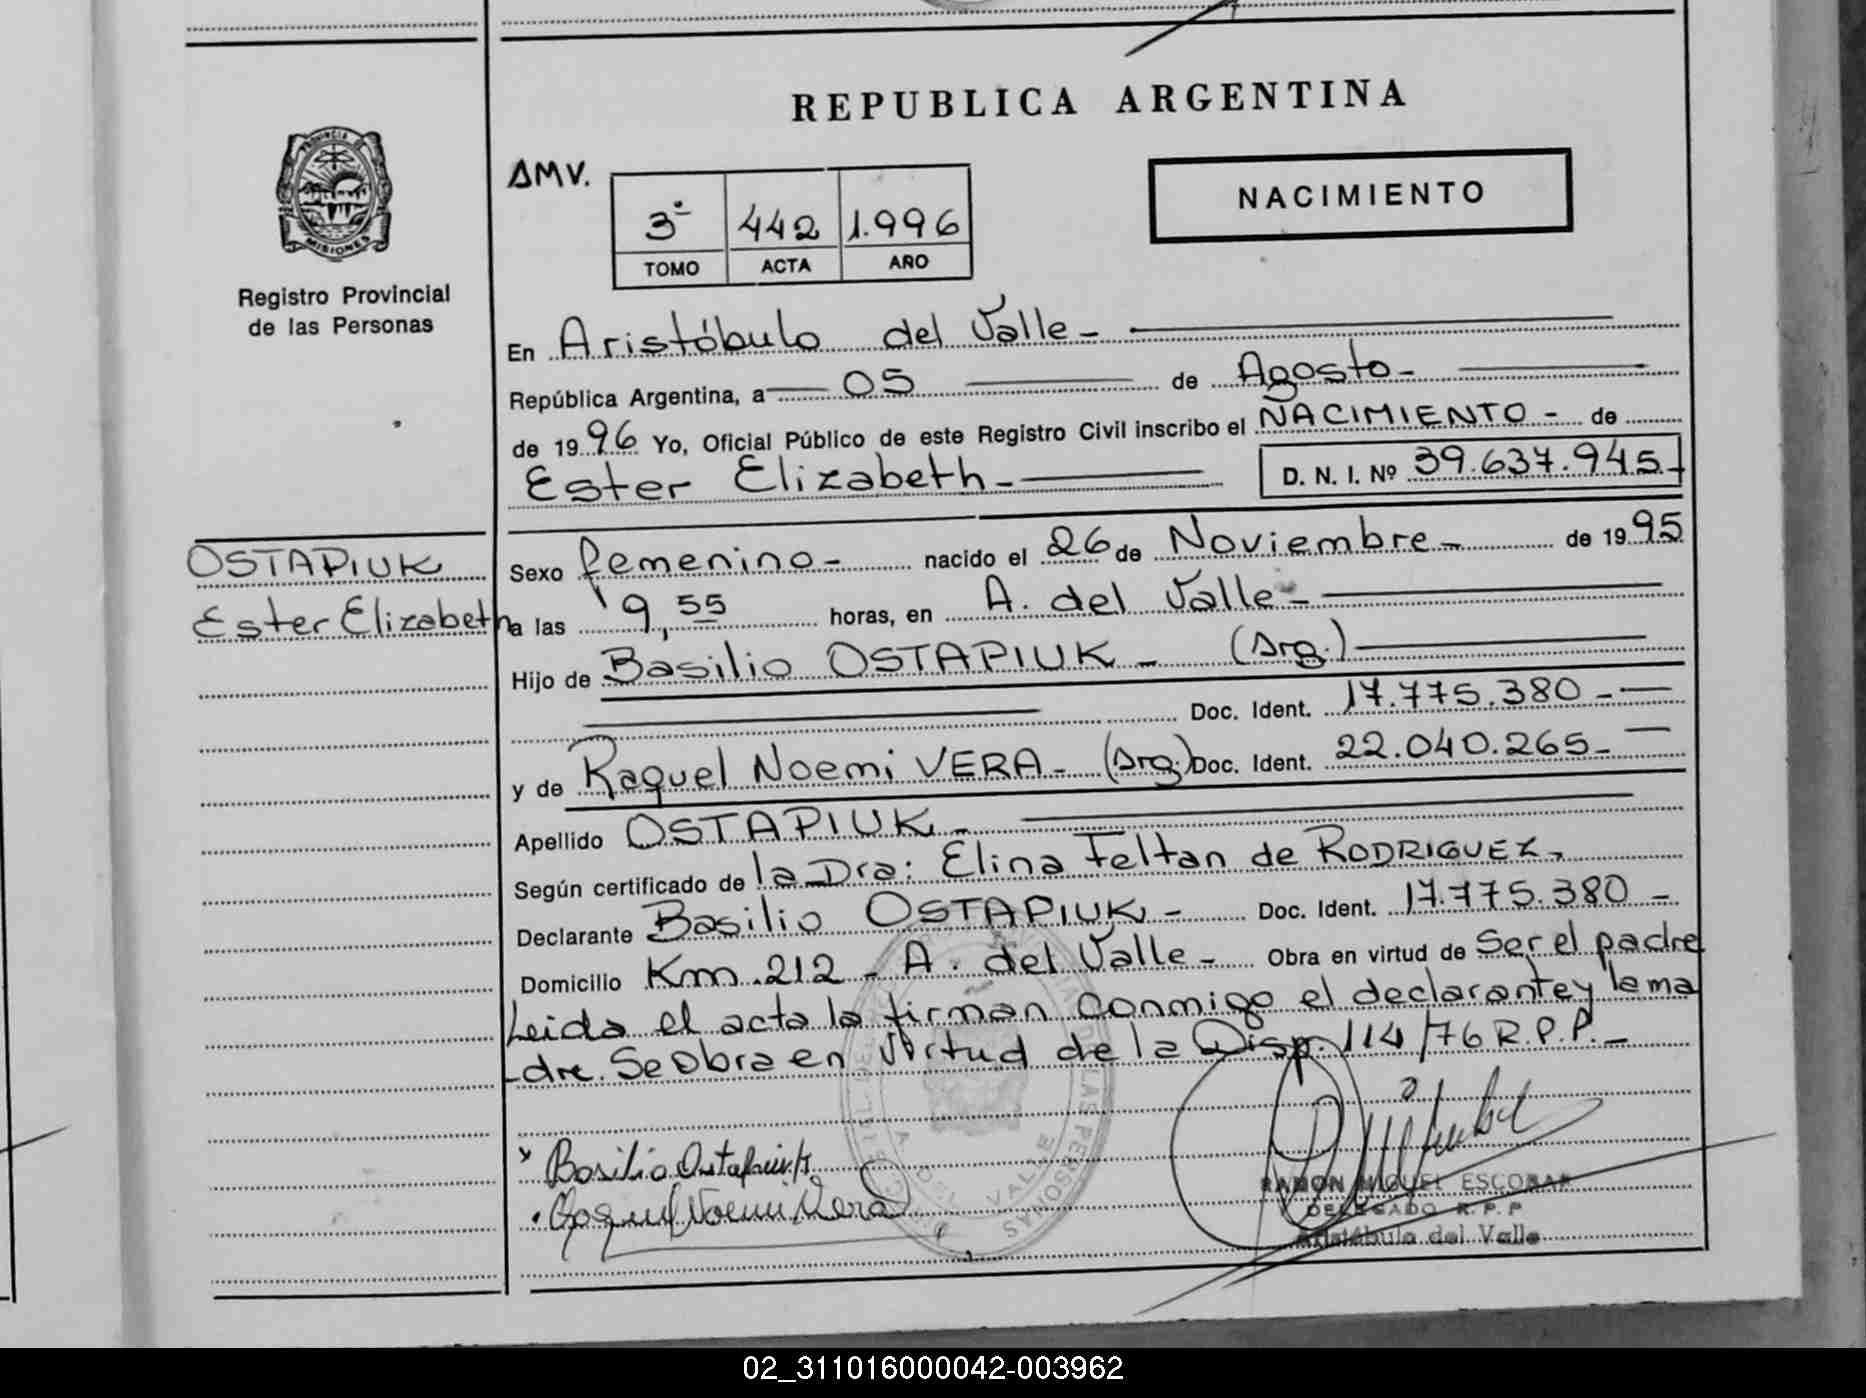 REPUBLICA ARGENTINA
PROVINCIA DE MISIONES
Registro Provincial
de las Personas
AMV.
3º 442 1.996
TOMO ACTA AÑO
NACIMIENTO
En Aristóbulo del Valle -
República Argentina, a 05 de Agosto -
de 1996 Yo, Oficial Público de este Registro Civil inscribo el NACIMIENTO - de
Ester Elizabeth - D. N. I. Nº 39.637.945 -
OSTAPIUK
Ester Elizabeth
Sexo femenino - nacido el 26 de Noviembre - de 1995
a las 9,55 horas, en A. del Valle -
Hijo de Basilio OSTAPIUK - (Arg.)
Doc. Ident. 17.775.380 -
y de Raquel Noemi VERA - (Arg.) Doc. Ident. 22.040.265 -
Apellido OSTAPIUK -
Según certificado de la Dra: Elina Feltan de RODRIGUEZ,
Declarante Basilio OSTAPIUK - Doc. Ident. 17.775.380 -
Domicilio Km. 212 - A. del Valle - Obra en virtud de Ser el padre
Leida el acta la firman conmigo el declarante y la ma
-dre. Se obra en virtud de la Disp. 114/76 R.P.P. -
Basilio Ostapiuk
Raquel Noemi Vera
A DEL VALLE
RAMON MIGUEL ESCOBAR
DELEGADO R.P.P
Aristóbulo del Valle
02_311016000042-003962